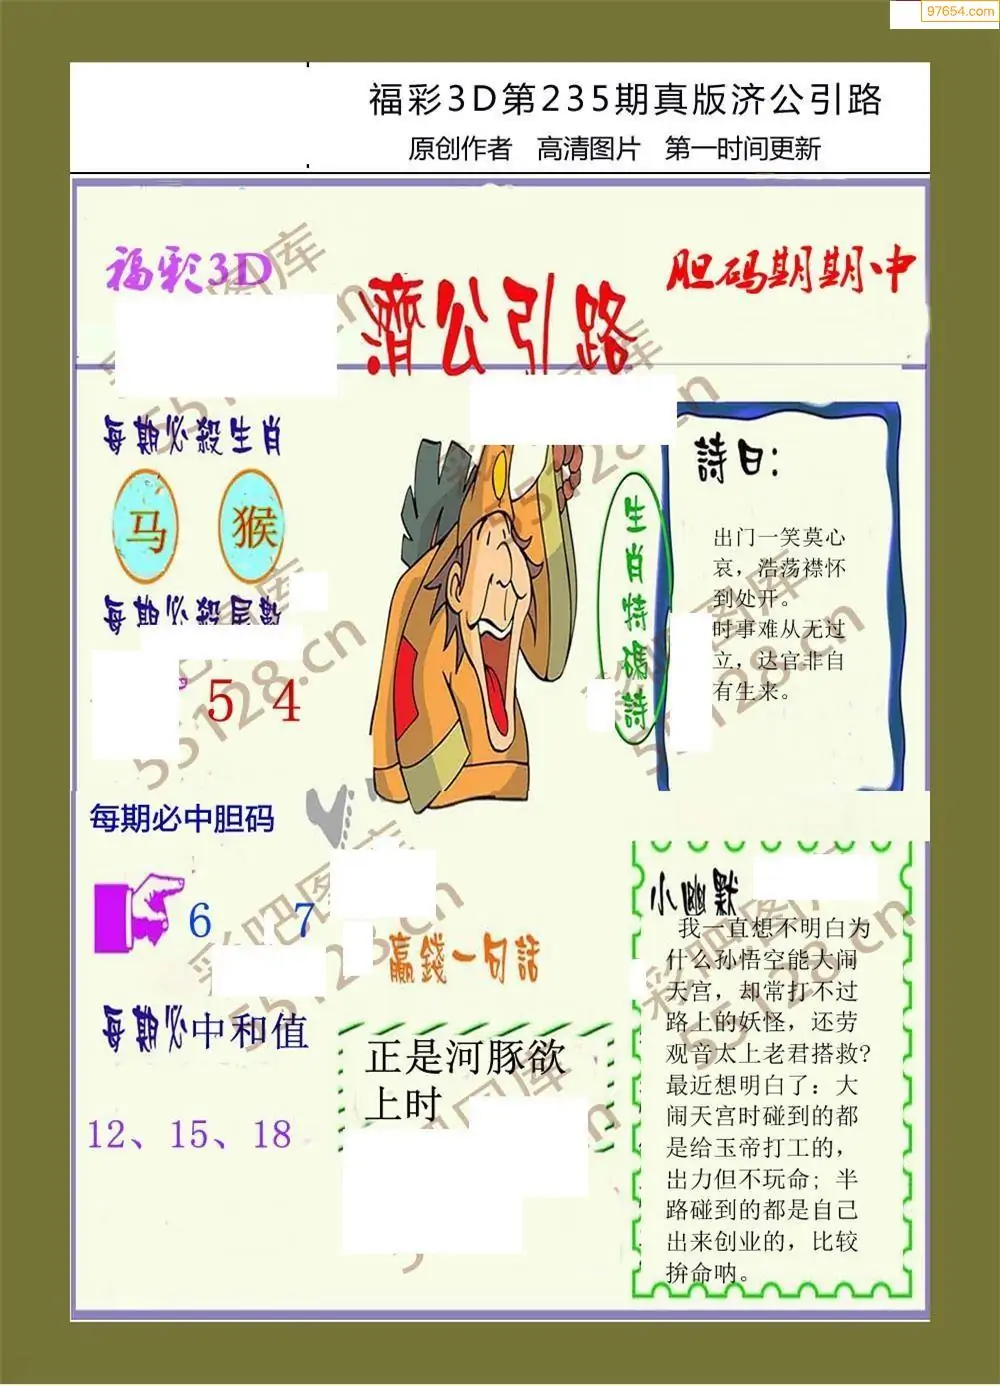 97654.com
福彩3D第235期真版济公引路
原创作者 高清图片 第一时间更新
福彩3D
濟公引路
胆码期期中
每期必殺生肖
马 猴
每期必殺尾數
5 4
每期必中胆码
6 7
每期必中和值
12、15、18
生肖特碼詩
詩曰:
出门一笑莫心
哀，浩荡襟怀
到处开。
时事难从无过
立，达官非自
有生来。
赢錢一句話
正是河豚欲
上时
小幽默
我一直想不明白为
什么孙悟空能大闹
天宫，却常打不过
路上的妖怪，还劳
观音太上老君搭救?
最近想明白了: 大
闹天宫时碰到的都
是给玉帝打工的，
出力但不玩命; 半
路碰到的都是自己
出来创业的，比较
拚命呐。
彩吧图库
55128.cn